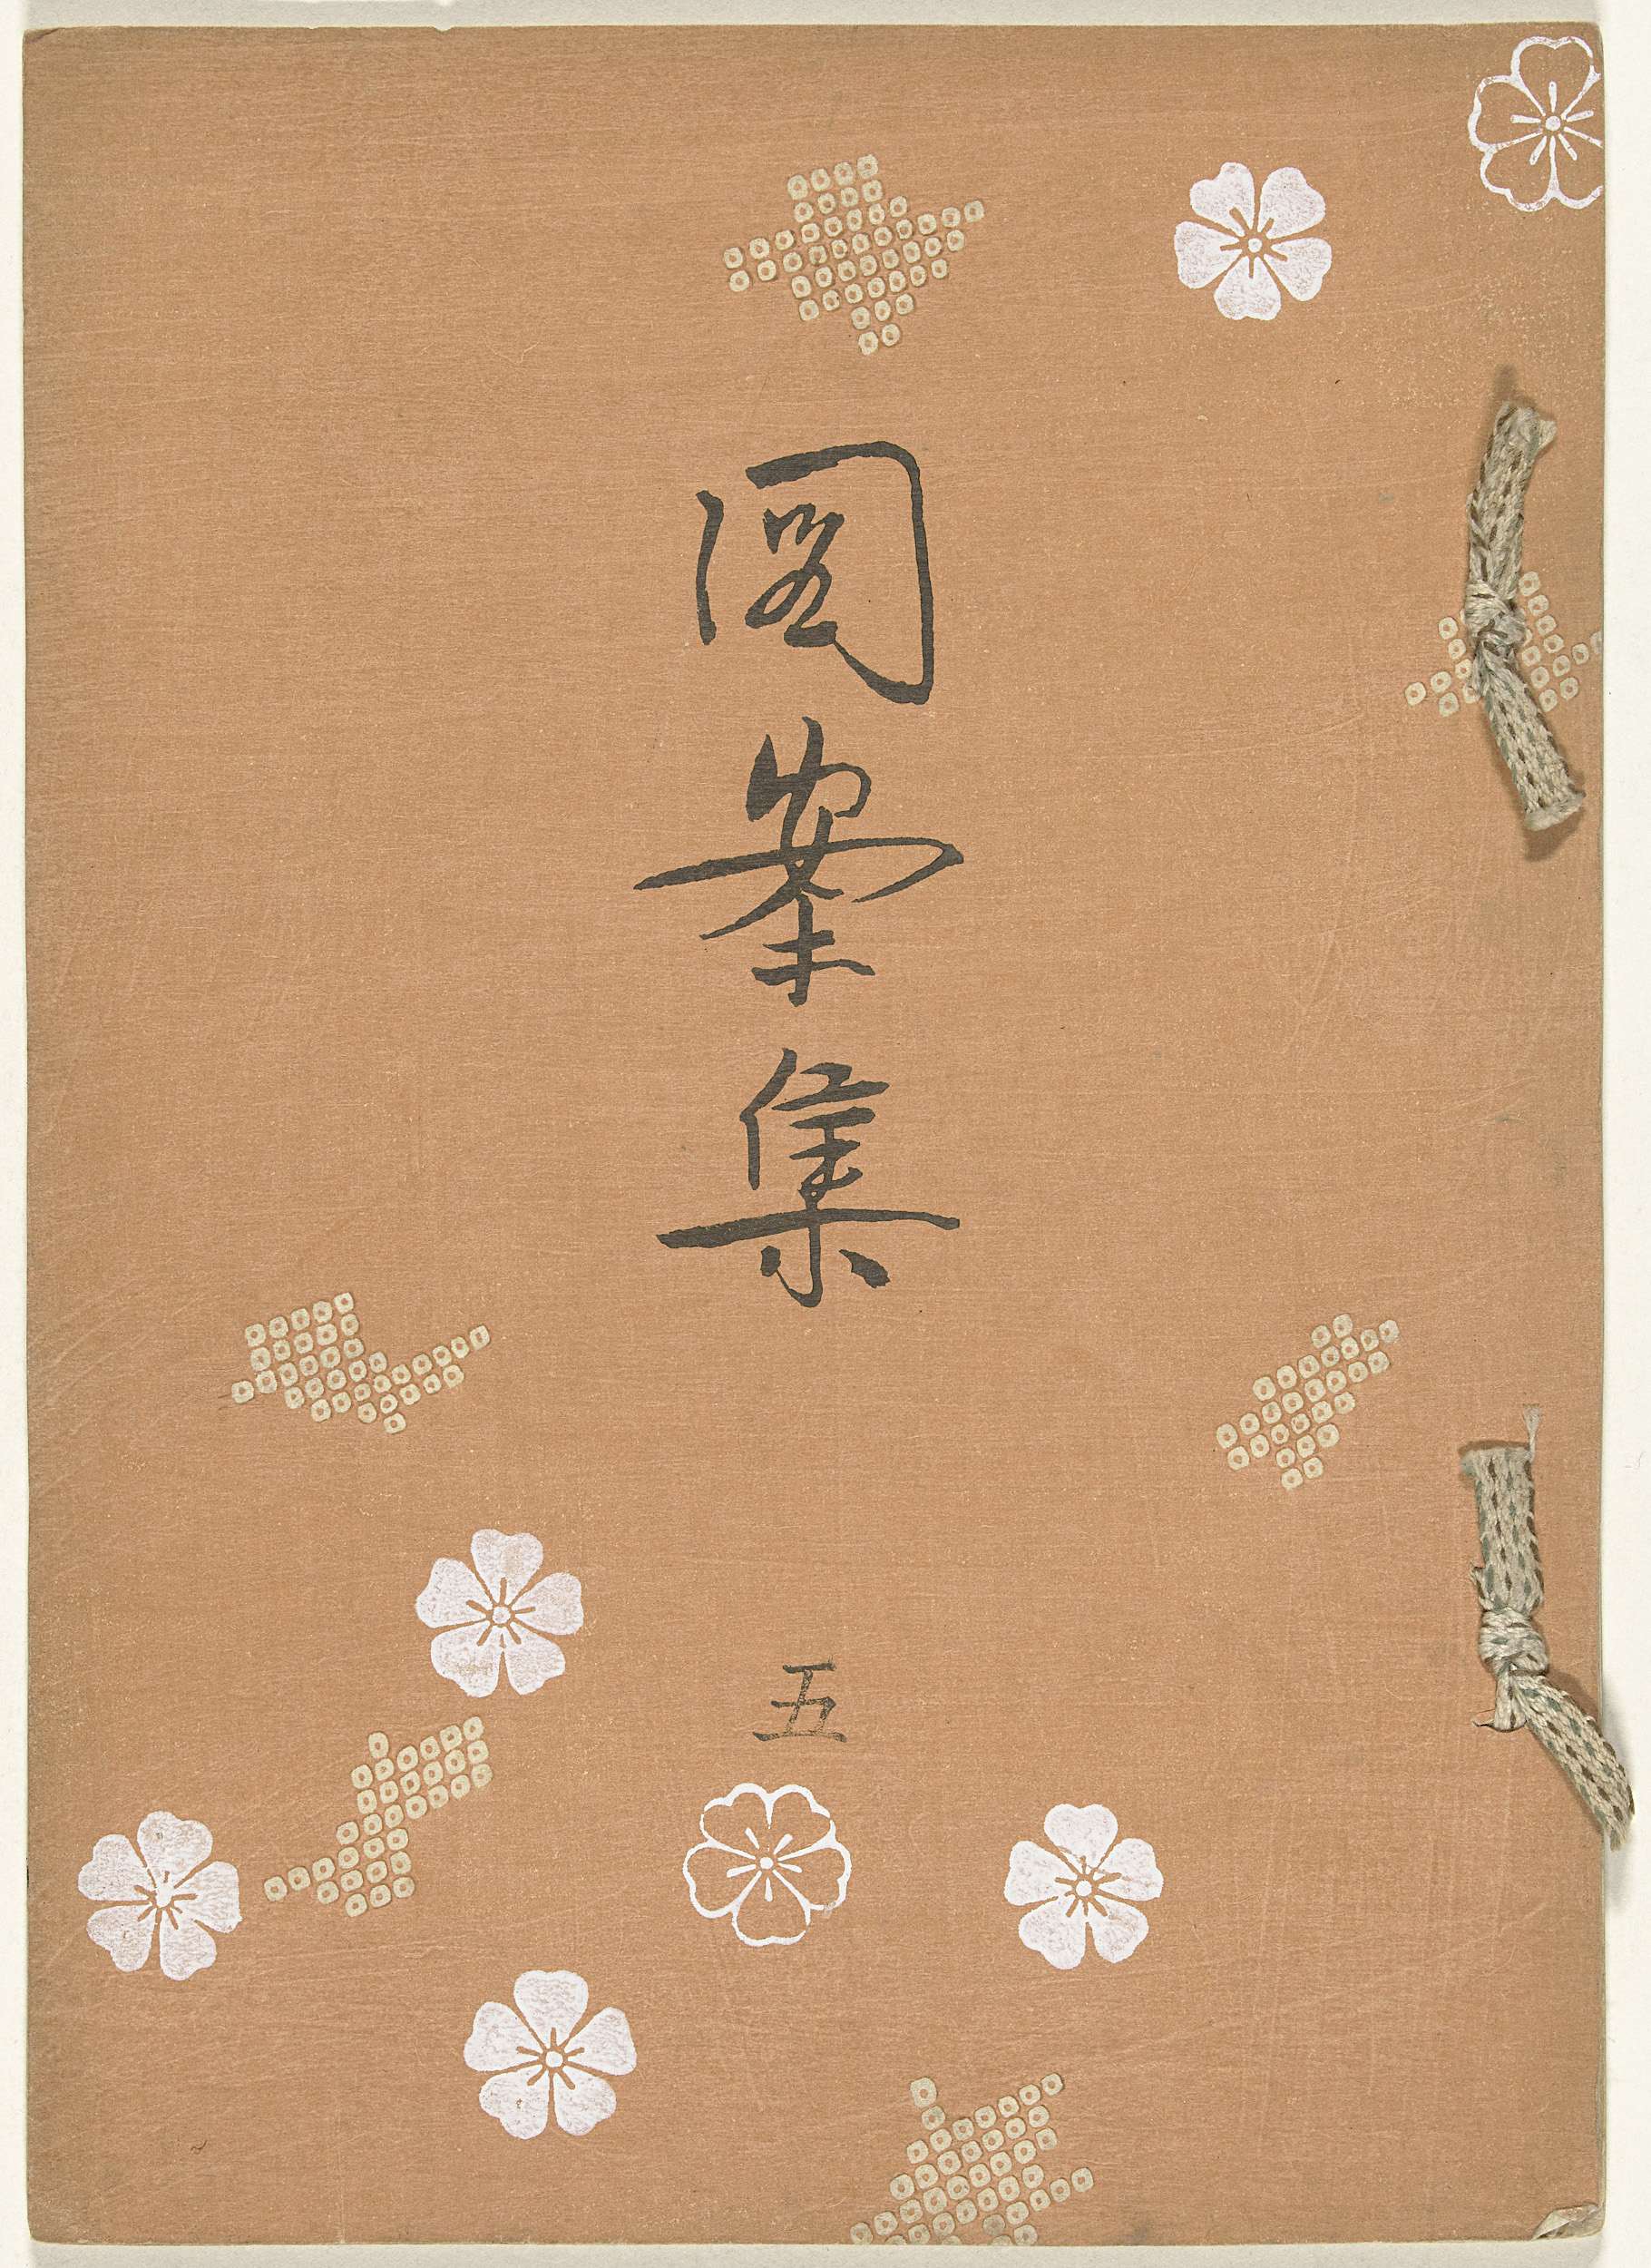 圖案集
五